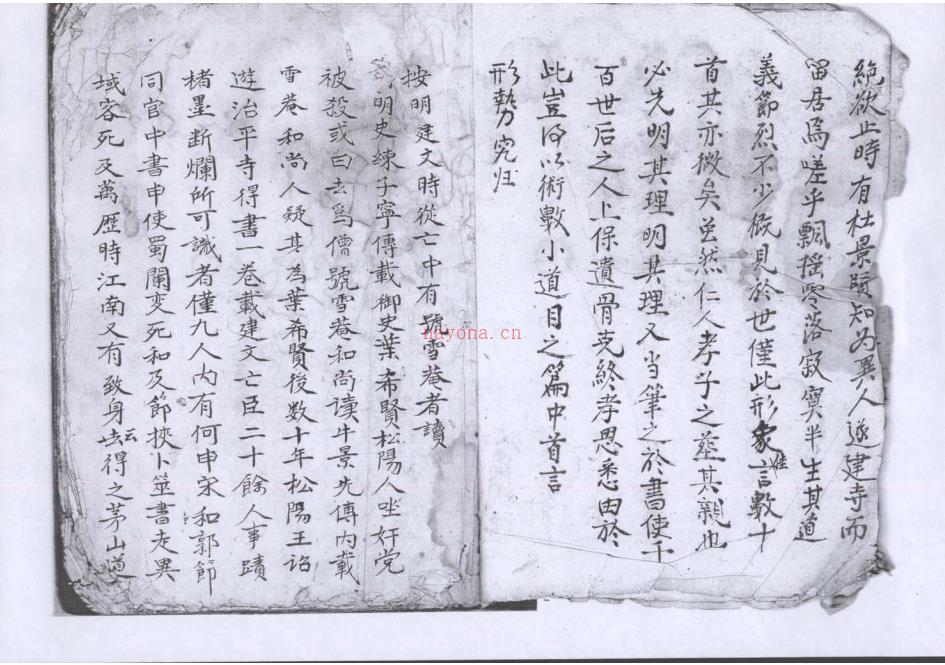 絶欲止時有杜景賢知为異人遂建寺而
留居焉嗟乎飄摇零落寂寞半生其道
義節烈不少概見於世僅此形家言數十
首其亦微矣虽然仁人孝子之塟其親也
必先明其理明其理又当筆之於書使千
百世后之人上保遺骨克終孝思悉由於
此豈得以術數小道目之篇中首言
形勢究归
按明建文時從亡中有號雪菴者讀
明史練子寧傳載御史葉希賢松陽人坐奸党
被殺或曰去爲僧號雪菴和尚读牛景先傳内載
雪菴和尚人疑其為葉希賢後数十年松陽王詔
遊治平寺得書一卷載建文亡臣二十餘人事蹟
楮墨断爛所可識者僅九人内有何申宋和郭節
同官中書申使蜀聞变死和及節挾卜筮書走異
域客死及萬歷時江南又有致身云得之茅山道
nayona.cn